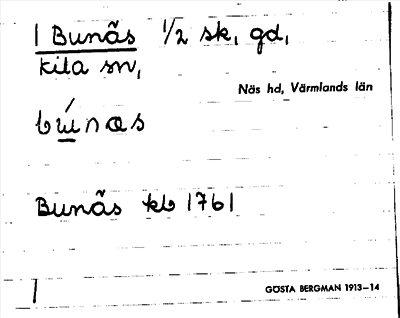 1 Bunäs 1/2 sk, gd,
Kila sn,
Näs hd, Värmlands län
Bunäs kb 1761
GÖSTA BERGMAN 1913—14